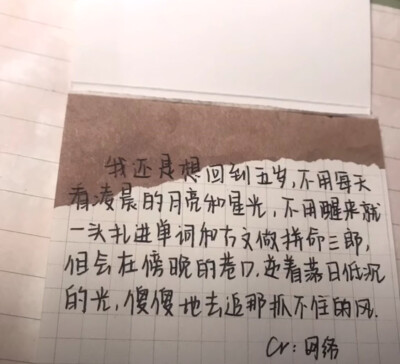 我还是想回到五岁,不用每天
看凌晨的月亮和星光,不用醒来就
一头扎进单词和古文做拼命三郎,
但会在傍晚的巷口,逆着落日低沉
的光,傻傻地去追那抓不住的风.
Cr:网络